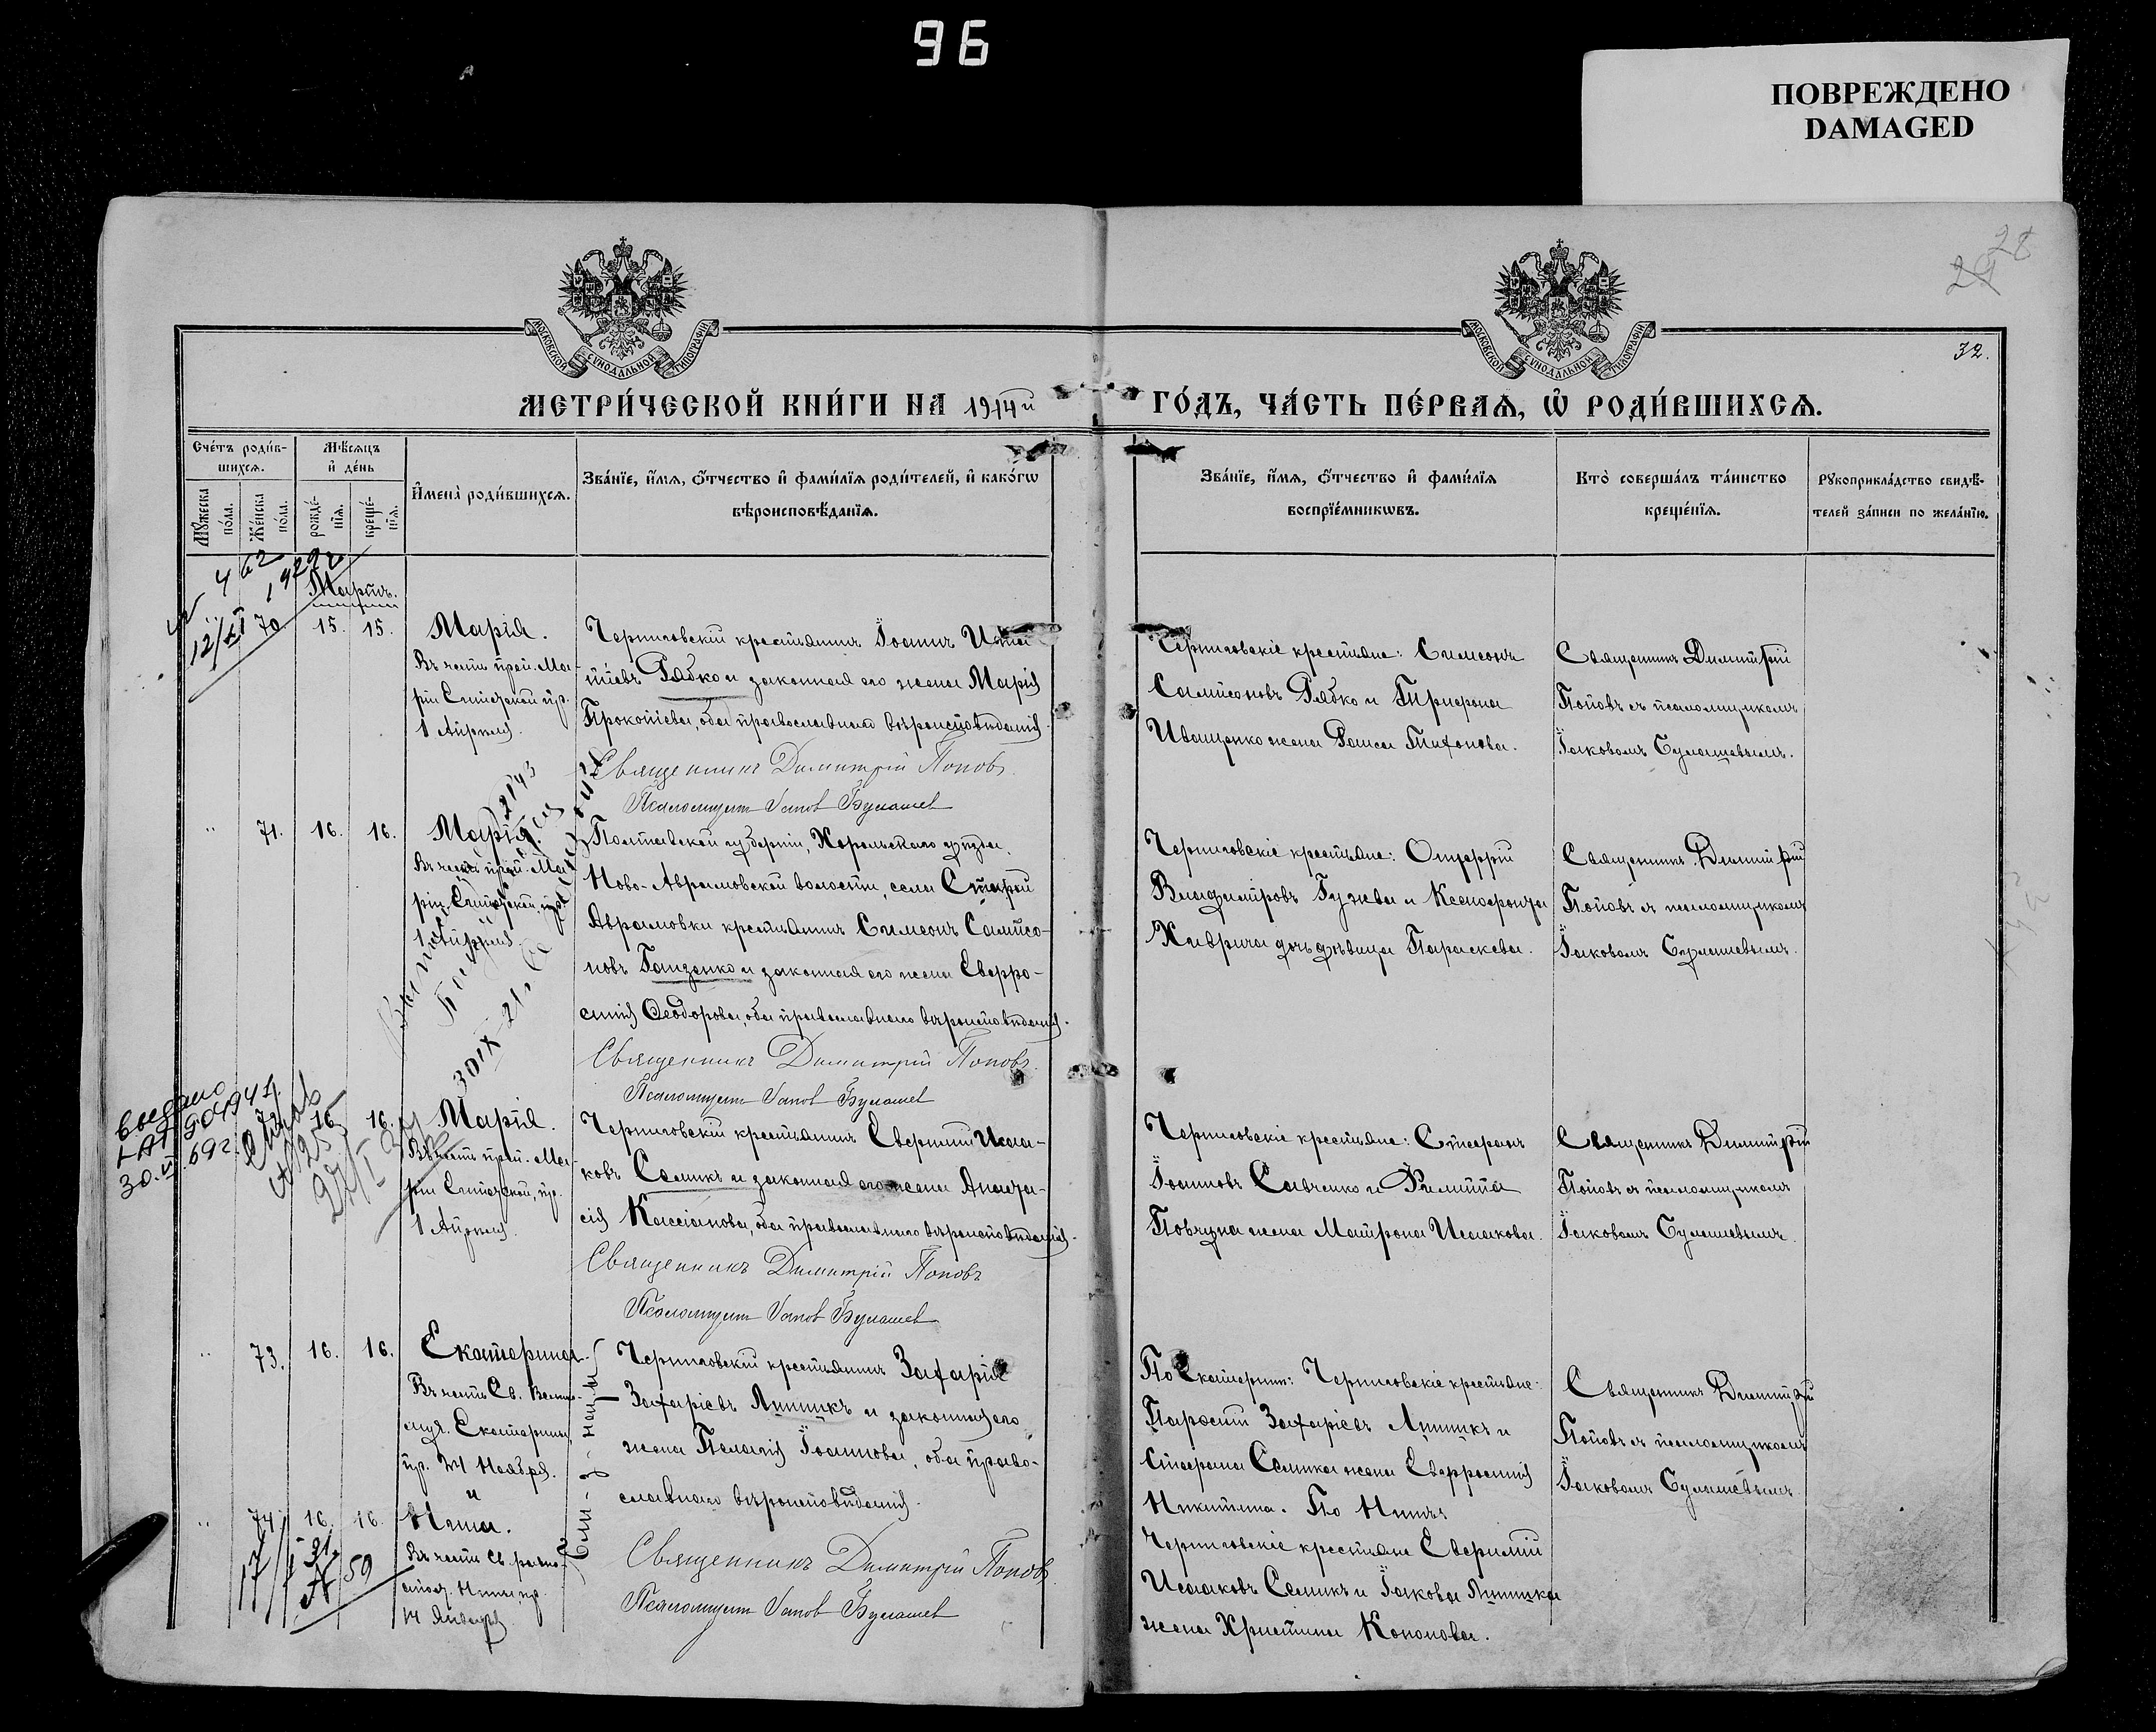 96
ПОВРЕЖДЕНО
DAMAGED
28
29
32.
МОСКОВСКОЙ СѴНОДАЛЬНОЙ ТИПОГРАФІИ
МОСКОВСКОЙ СѴНОДАЛЬНОЙ ТИПОГРАФІИ
МЕТРИ́ЧЕСКОЙ КНИ́ГИ НА 1914й ГО́ДЪ, ЧА́СТЬ ПЕ́РВАѦ, Ѡ҆ РОДИ́ВШИХСѦ.
Сче́тъ роди́в-
шихсѧ.
Мѣ́сѧцъ
и҆ де́нь
Мꙋ́жеска
по́ла.
Же́нска
по́ла.
рожде́-
нїѧ.
креще́-
нїѧ.
И҆мена̀ роди́вшихсѧ.
Зва́нїе, и҆́мѧ, ѻ҆́тчество и҆ фами́лїѧ роди́телей, и҆ како́гѡ
вѣроисповѣ́данїѧ.
Зва́нїе, и҆́мѧ, ѻ҆́тчество и҆ фами́лїѧ
воспрїе́мникѡвъ.
Кто̀ соверша́лъ та́инство
креще́нїѧ.
Рꙋкоприкла́дство свидѣ́-
телей за́писи по жела́нїю.
462
1929г
12/XI
Мартъ.
70 15. 15. Марія.
Въ честь преп. Ма-
ріи Египетской пр.
1 Апреля.
Черниговскій крестьянинъ Іоаннъ
тіевъ Рябко и законная его жена Марія
Прокопіева, оба православнаго вѣроисповѣданія.
Священникъ Димитрій Поповъ.
Псаломщикъ Іаковъ Булашев
Черниговскіе крестьяне: Симеонъ
Сампсоновъ Рябко и Трифона
Иващенко жена Раиса Тихонова.
Священникъ Димитрій
Поповъ съ псаломщикомъ
Іаковомъ Булашевымъ.
" 71. 16. 16. Марія.
Въ честь преп. Ма-
ріи Египетской, пр.
1 Апреля.
Полтавской губерніи, Хорольскаго уѣзда,
Ново-Аврамовской волости, села Старой
Аврамовки крестьянинъ Симеонъ Сампсо-
новъ Ганзенко и законная его жена Евфро-
синія Ѳеодорова, оба православнаго вѣроисповѣданія.
Священникъ Димитрій Поповъ.
Псаломщикъ Іаковъ Булашев
Черниговскіе крестьяне: Онуфрій
Владиміровъ Гужва и Ксенофонта
Хаврича дочь дѣвица Параскева.
Священникъ Димитрій
Поповъ съ псаломщикомъ
Іаковомъ Булашевымъ.
30/IX-21.
выдано
I-АП 904941.
30.VI.69г.
72. 16. 16. Марія.
Въ честь преп. Ма-
ріи Египетской, пр.
1 Апреля.
Черниговскій крестьянинъ Евфимій Исаа-
ковъ Семикъ и законная его жена Анаста-
сія Кассіанова, оба православнаго вѣроисповѣданія.
Священникъ Димитрій Поповъ
Псаломщикъ Іаковъ Булашев
Черниговскіе крестьяне: Стефанъ
Іоанновъ Савченко и Филиппа
Повчуна жена Матрона Исаакова.
Священникъ Димитрій
Поповъ съ псаломщикомъ
Іаковомъ Булашевымъ.
" 73. 16. 16. Екатерина
Въ честь Св. Велико-
муч. Екатерины,
пр. 24 Ноября.
и
" 74. 16. 16. Нина.
Въ честь св. равно-
апост. Нины, пр.
14 Января
17/I 31.
№ 59
Близнецы
Черниговскій крестьянинъ Захарія
Захаріевъ Лупикъ и законная его
жена Пелагія Іоаннова, оба право-
славнаго вѣроисповѣданія.
Священникъ Димитрій Поповъ
Псаломщикъ Іаковъ Булашев
По Екатеринѣ: Черниговскіе крестьяне:
Парфеній Захаріевъ Лупикъ и
Стефана Семика жена Евфросинія
Никитина. По Нинѣ:
Черниговскіе крестьяне Евфимій
Исааковъ Семикъ и Іакова Лупика
жена Христина Кононова.
Священникъ Димитрій
Поповъ съ псаломщикомъ
Іаковомъ Булашевымъ.